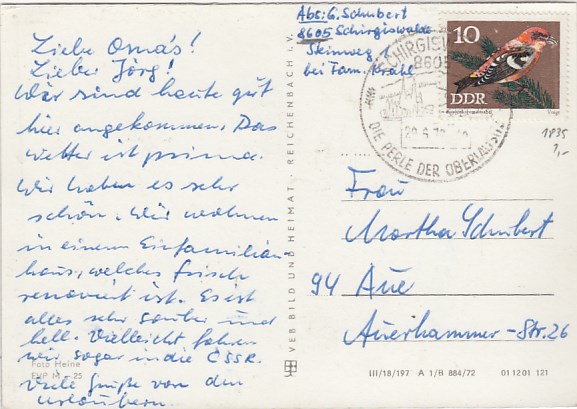 Liebe Oma's!
Lieber Jörg!
Wir sind heute gut
hier angekommen. Das
Wetter ist prima.
Wir haben es sehr
schön. Wir wohnen
in einem Einfamilien
haus, welches frisch
renoviert ist. Es ist
alles sehr sauber und
hell. Vielleicht fahren
wir sogar in die ČSSR.
Viele Grüße von den
Urlaubern.
Foto Heine
EVP M -25
VEB BILD UND HEIMAT · REICHENBACH i. V.
Abs: G. Schubert
8605 Schirgiswalde
Steinweg 1
bei Fam. Krahl
10
DDR
8605
DIE PERLE DER OBERLAUSITZ
1835
1,-
Frau
Martha Schubert
94 Aue
Auerhammer-Str. 26
III/18/197 A 1/B 884/72 01 12 01 121